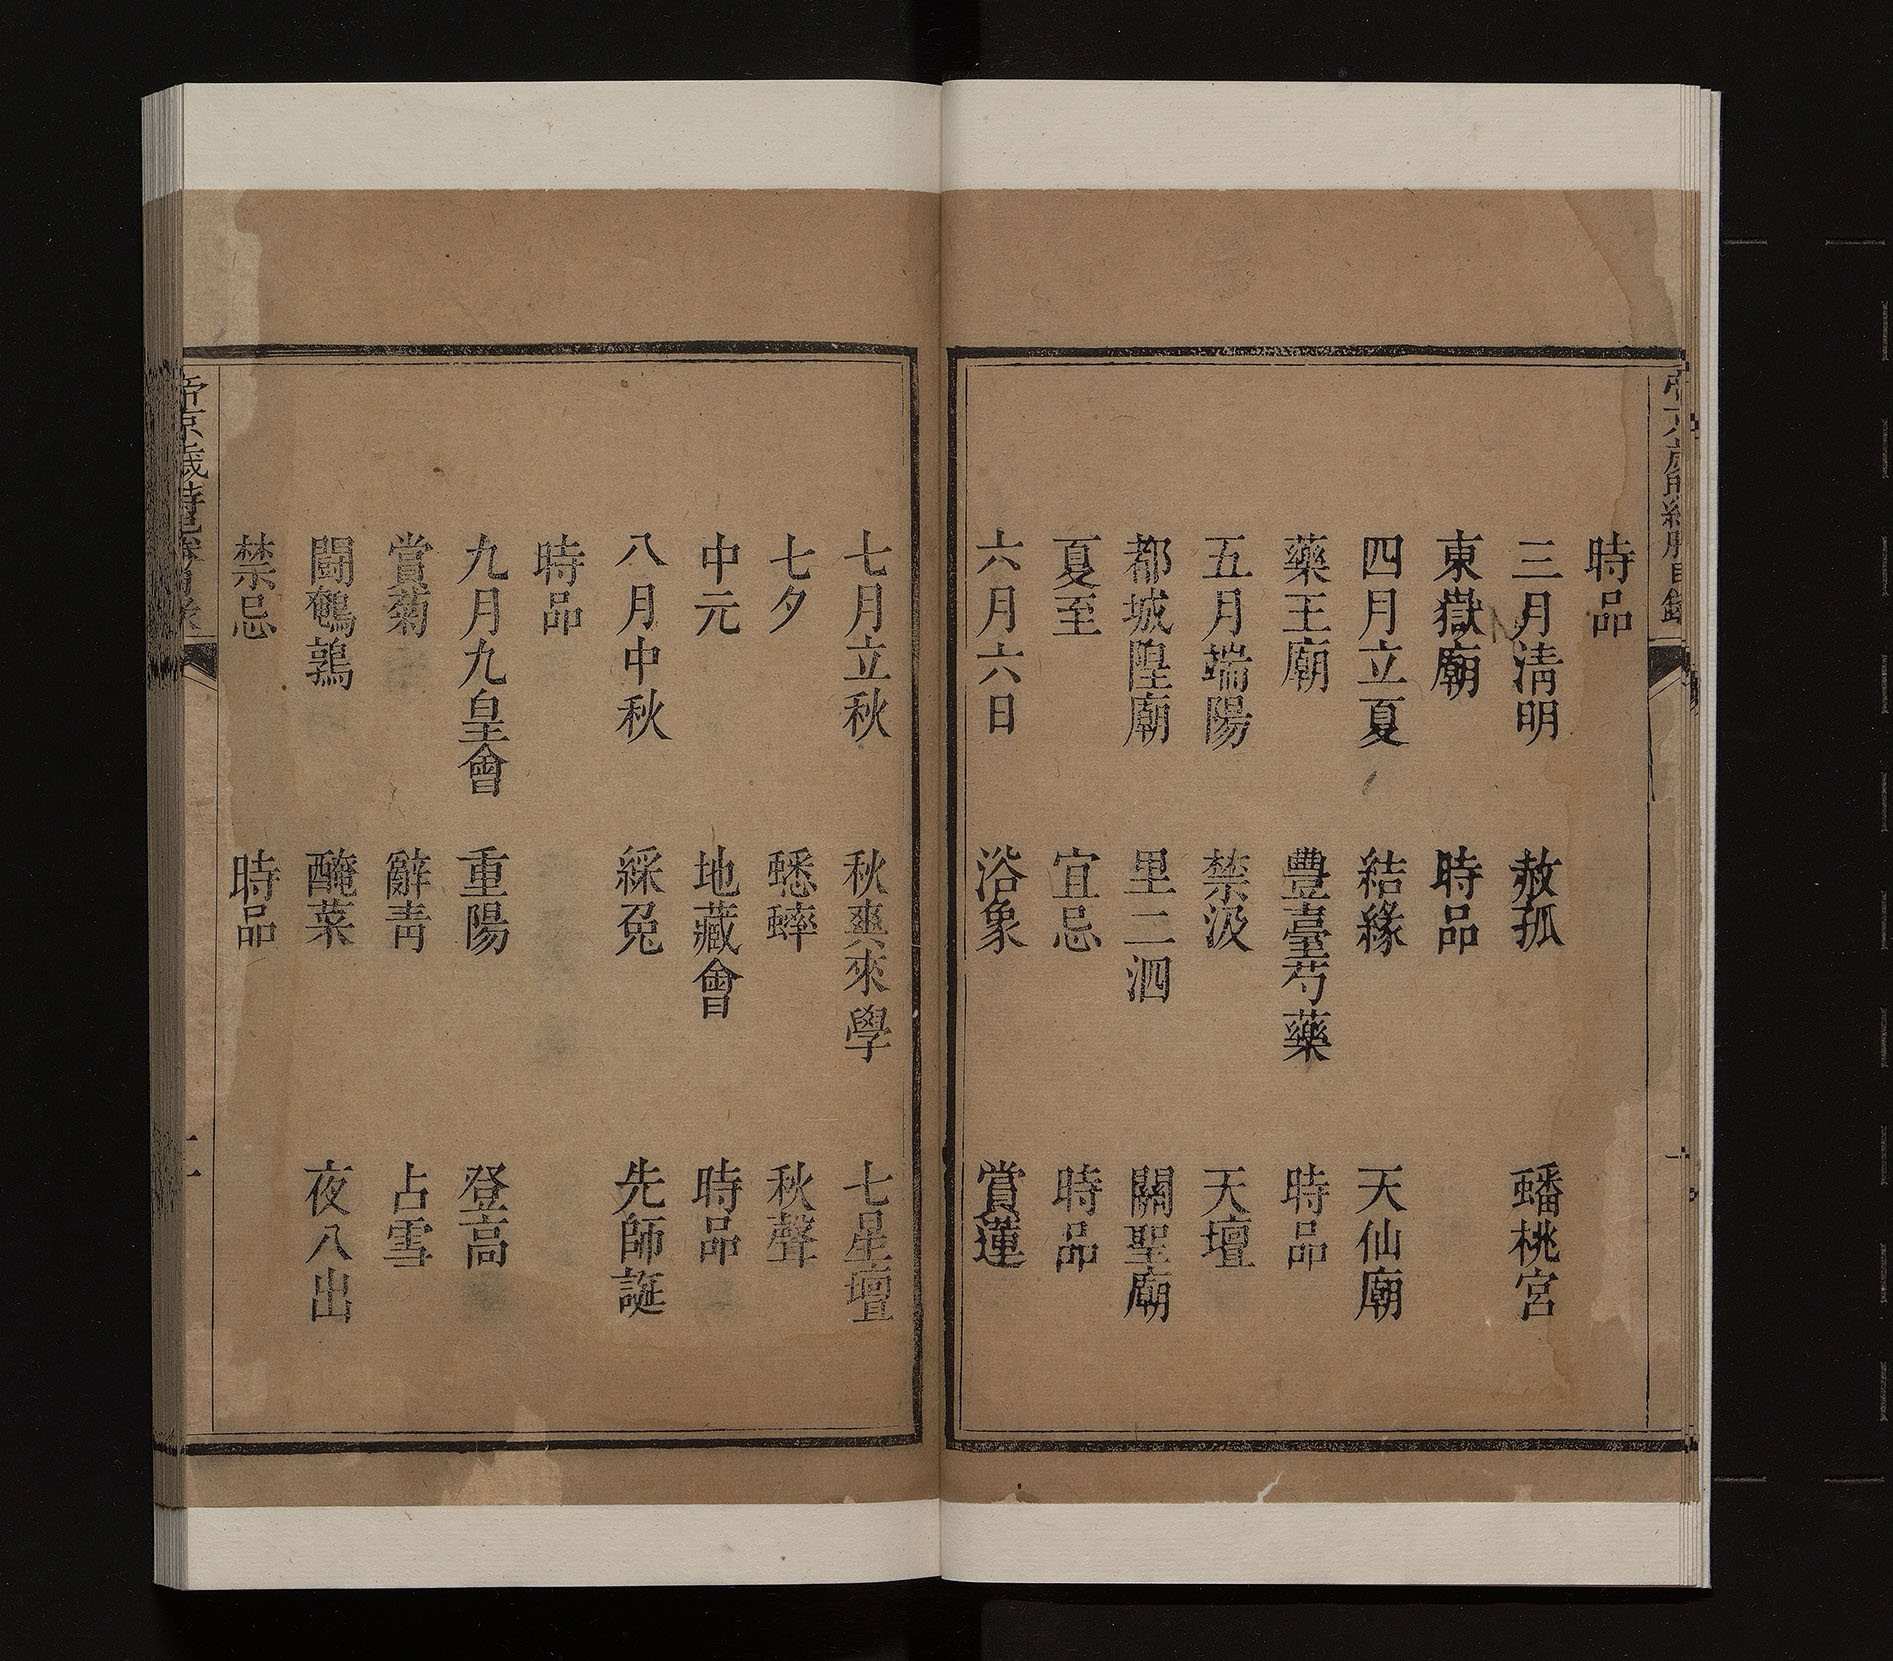 時品
三月淸明 赦孤 蟠桃宮
東嶽廟 時品
四月立夏 結緣 天仙廟
藥王廟 豐臺芍藥 時品
五月端陽 禁汲 天壇
都城隍廟 里二泗 關聖廟
夏至 宜忌 時品
六月六日 浴象 賞蓮
七月立秋 秋爽來學 七星壇
七夕 蟋蟀 秋聲
中元 地藏會 時品
八月中秋 綵兔 先師誕
時品
九月九皇會 重陽 登高
賞菊 辭靑 占雪
鬪鵪鶉 醃菜 夜八出
禁忌 時品
帝京歲時